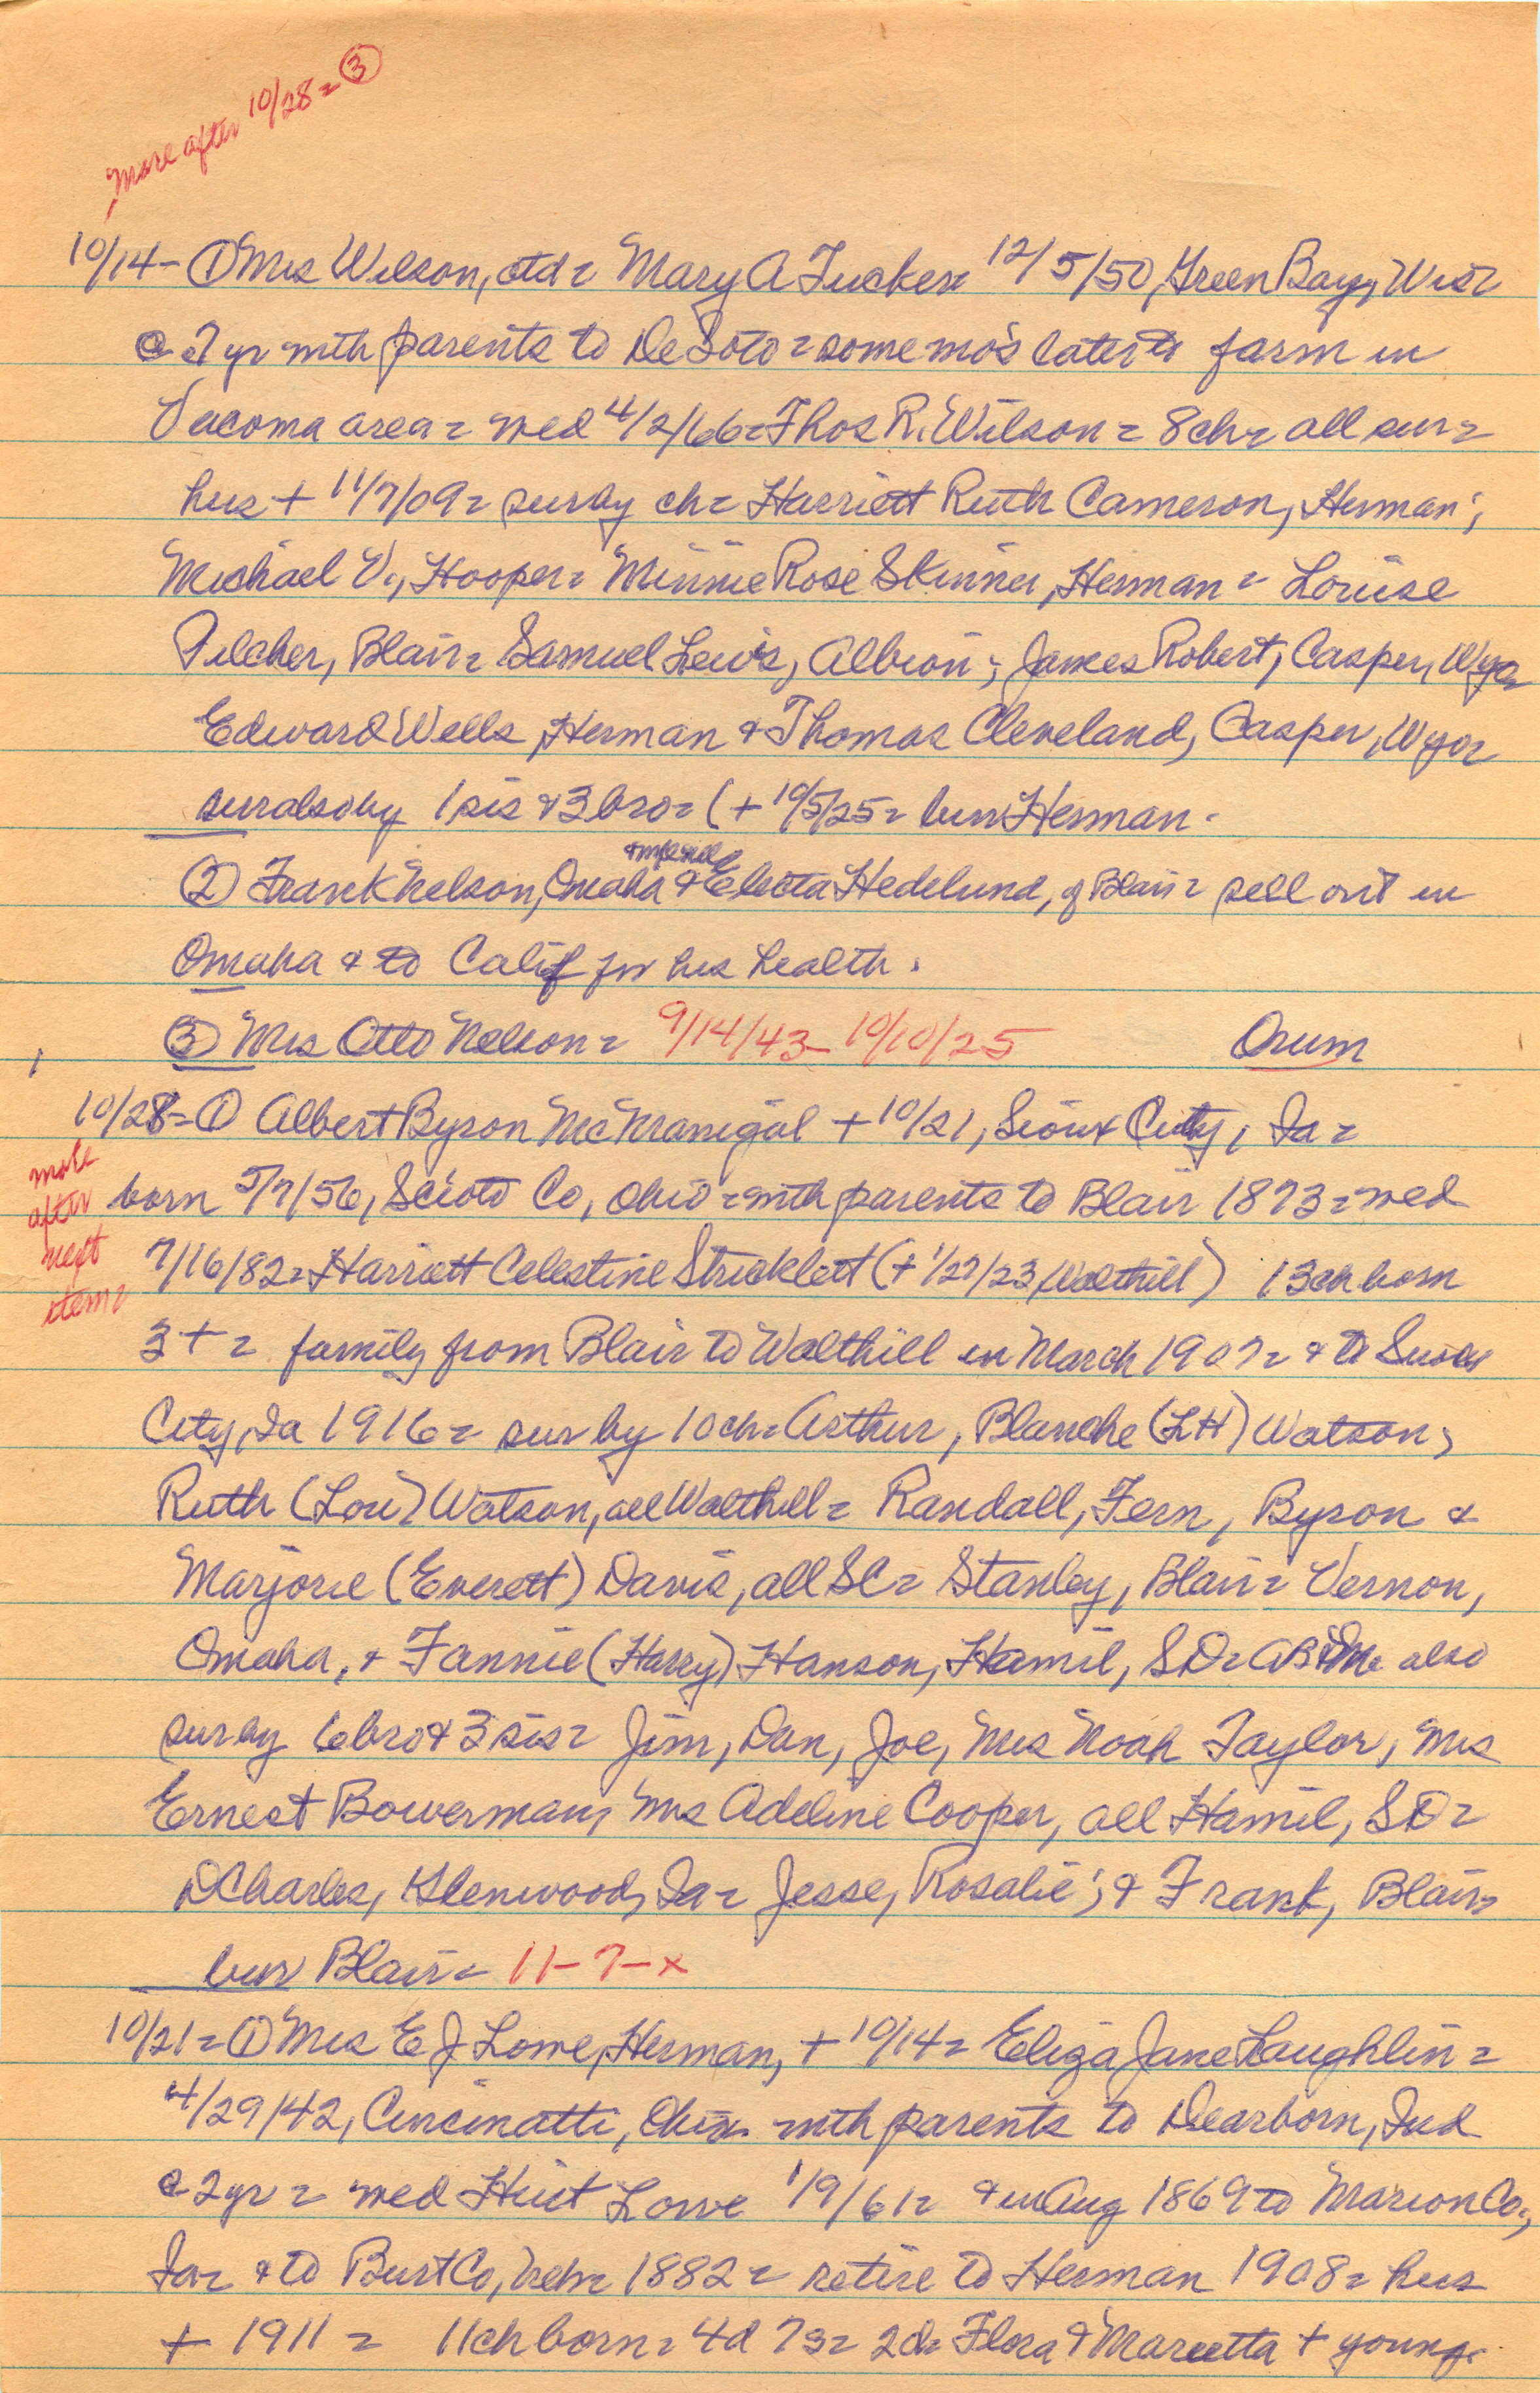 more after 10/28 = ③
10/14 - ① Mrs Wilson, ctd = Mary A Tucker = 12/5/50, Green Bay, Wis =
@ 7 yr with parents to DeSoto = some mos later to farm in
Vacoma area = wed 4/2/66 = Thos R. Wilson = 8 ch = all sur =
hus + 11/7/09 = sur by ch = Harriett Ruth Cameron, Herman;
Michael V., Hooper = Minnie Rose Skinner, Herman = Louise
Pilcher, Blair = Samuel Lewis, Albion; James Robert, Casper, Wyo =
Edward Wells, Herman & Thomas Cleveland, Casper, Wyo =
sur also by 1 sis & 3 bro = (+ 10/5/25 = bur Herman -
② Frank Nelson, Omaha & Electa Hedelund, of Blair = sell out in
Omaha & to Calif for his health.
③ Mrs Otto Nelson = 9/14/43 - 10/10/25 Orum
10/28 = ① Albert Byron McManigal + 10/21, Sioux City, Ia =
more after next item =
born 5/7/56, Scioto Co, Ohio = with parents to Blair 1873 = wed
7/16/82 = Harriett Celestine Stricklett (+ 1/27/23, Walthill) 13 ch born
3 + = family from Blair to Walthill in March 1907 = & to Sioux
City, Ia 1916 = sur by 10 ch = Arthur, Blanche (LH) Watson;
Ruth (Lou) Watson, all Walthill = Randall, Fern, Byron &
Marjorie (Everett) Davis, all SC = Stanley, Blair = Vernon,
Omaha, & Fannie (Harry) Hanson, Hamil, SD = ABMc also
sur by 6 bro & 3 sis = Jim, Dan, Joe, Mrs Noah Taylor, Mrs
Ernest Bowerman, Mrs Adeline Cooper, all Hamil, SD =
Charles, Glenwood, Ia = Jesse, Rosalie; & Frank, Blair =
bur Blair = 11-7-x
10/21 = ① Mrs E J Lowe, Herman, + 10/14 = Eliza Jane Laughlin =
4/29/42, Cincinatti, Ohio = with parents to Dearborn, Ind
@ 2 yr = wed Hiet Lowe 1/9/61 = & in Aug 1869 to Marion Co.,
Ia = & to Burt Co, Neb = 1882 = retire to Herman 1908 = hus
+ 1911 = 11 ch born = 4d 7s = 2d = Flora & Marietta + young.